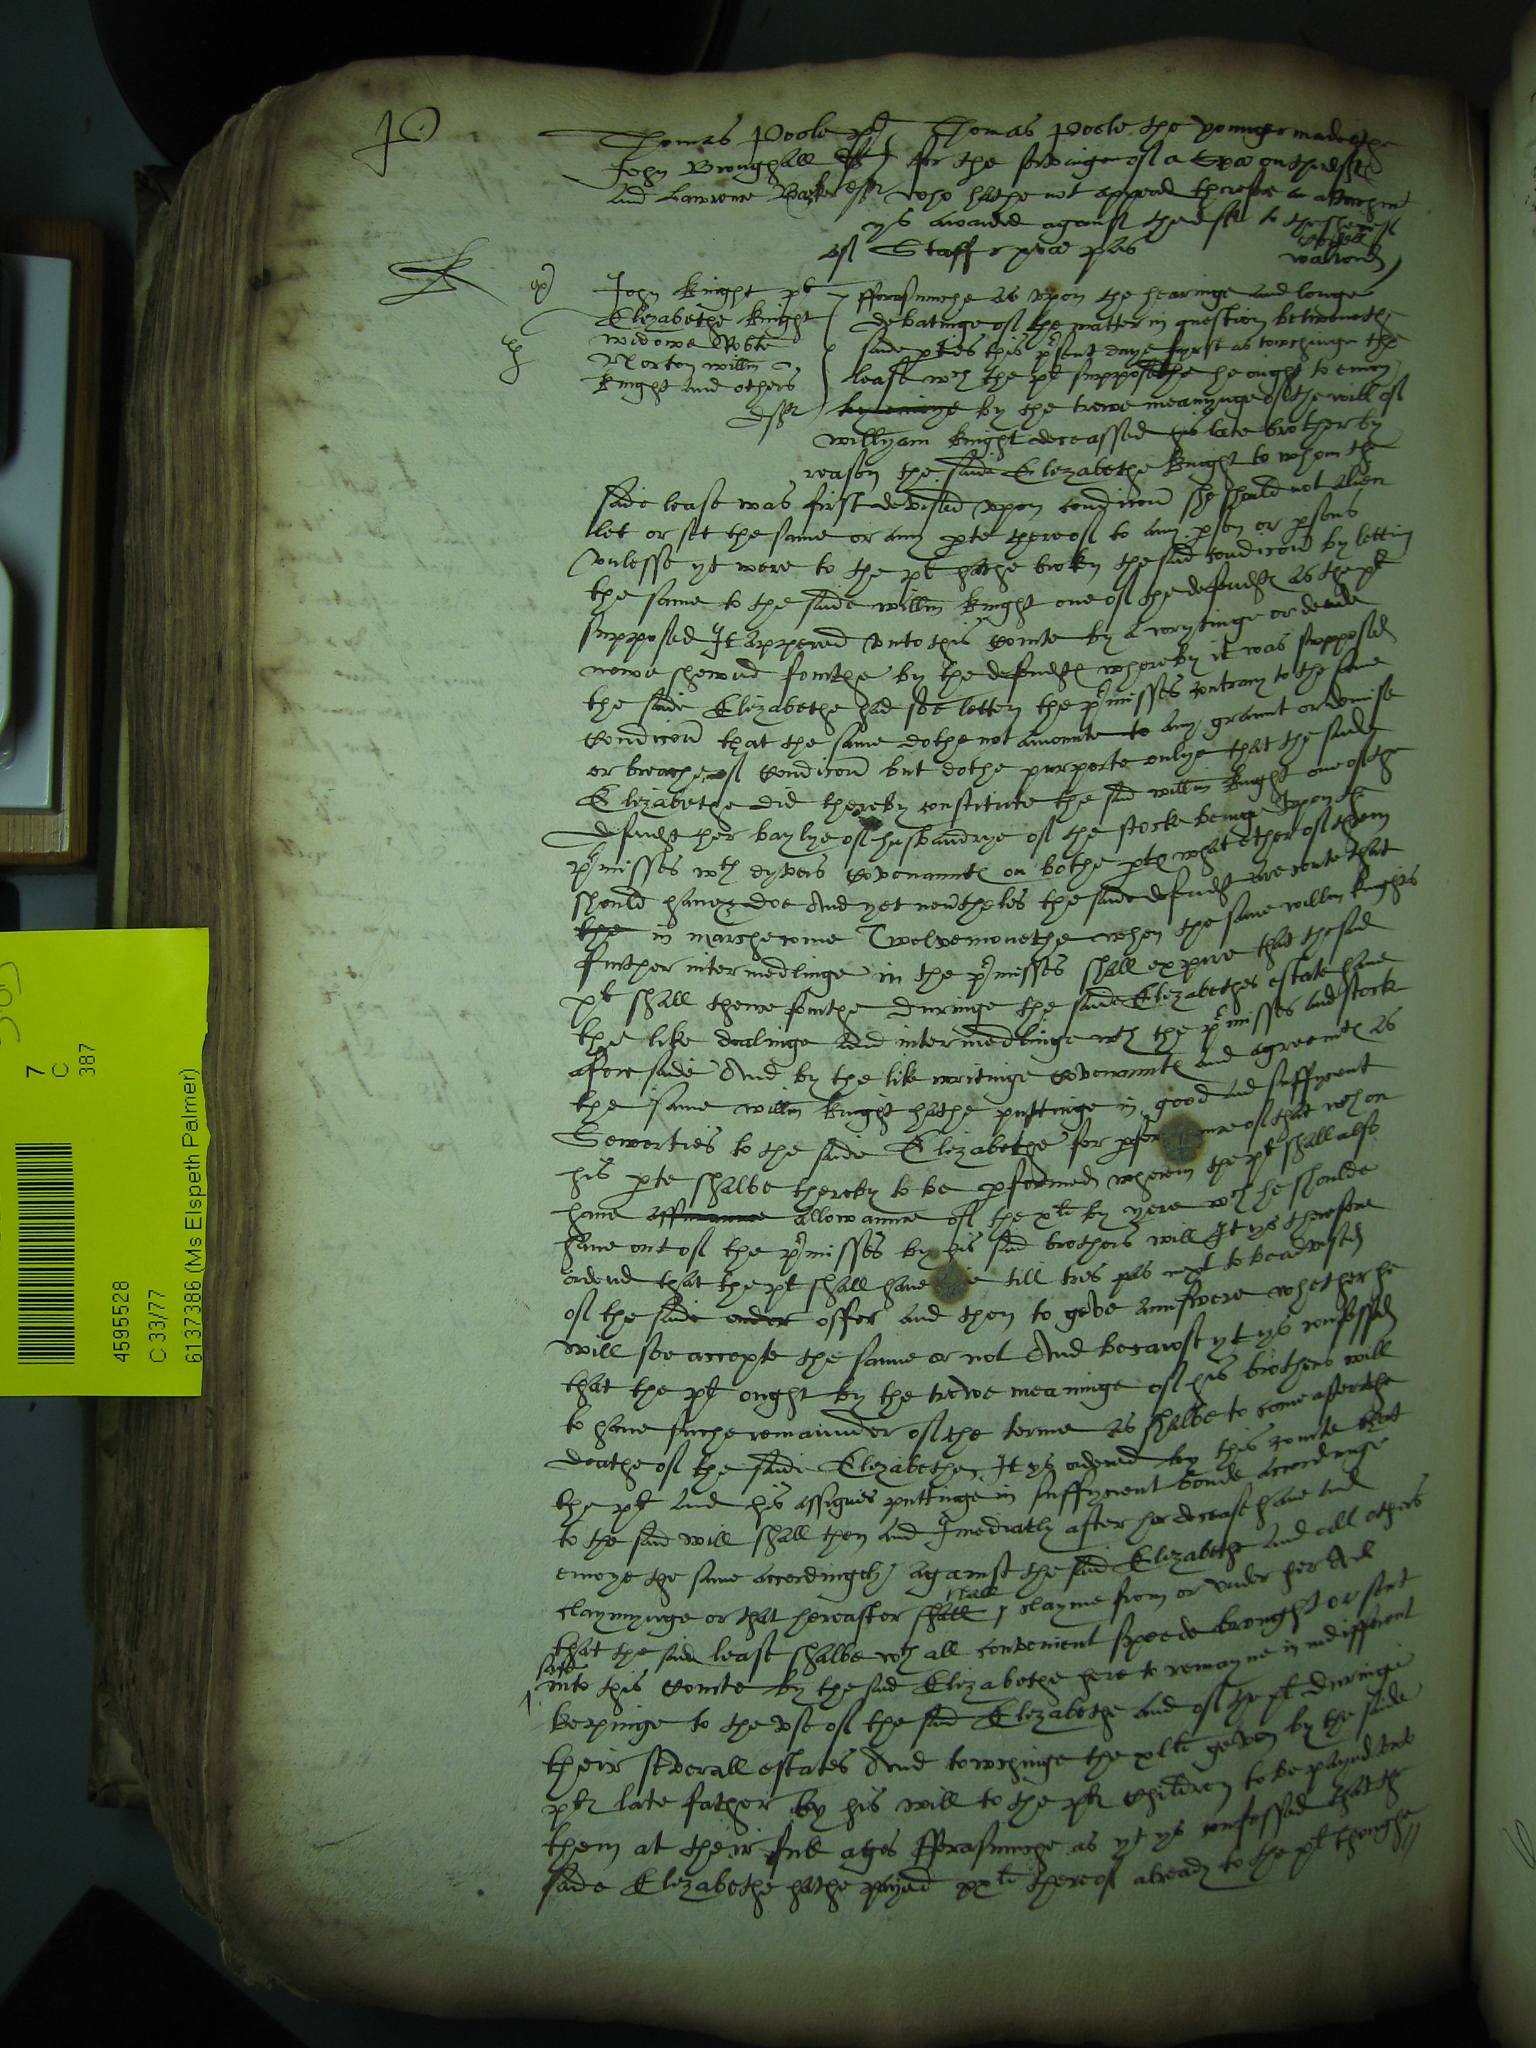 P
Thomas Poole pl Thomas Poole the younger made othe
John Broughall for the servinge of a spa on the deft
and Lawrence Barker deft who hathe not appered therfore an attachmt
ys awarded against the deft to the sheref
of Staff r xvne pas
walrond
K
John Knight pl fforasmuche as upon the hearinge and longe
Elizabethe Knight debatinge of the matter in question betwene the
widowe Robte saide pties this pñt daye fyrst as towchinge the
Norton willm lease wch the pl supposethe he ought to enioy
Knight and others by the trewe meanynge of the will of
deft
willyam Knight deceassed his late brother by
reason the saide Elizabethe Knight to whom the
saide lease was first devised upon condicon she should not alien
let or set the same or any pte thereof to any pson or psons
unlesse yt were to the pl hathe broken the said condicon by letting
the same to the saide willm Knight one of the defendts as the pl
supposed It appered unto this courte by a wrytinge or deade
nowe shewed fourthe by the defendts whereby it was supposed
the saide Elizabethe had soe letten the pmisses contrary to the same
condicon that the same dothe not amounte to any graunt or demise
or breache of condicon but dothe purporte onlye that the saide
Elizabethe did thereby constitute the said willm Knight one of the
defendts her baylye of husbandrye of the stocke beinge upon the
pmisses wth dyvers covenaunts on bothe pts what ether of them
should have & doe And yet nevtheles the saide defendts are contente that
the in marche come Twelvemonethe when the same willm Knights
further intermedlinge in the pmisses shall expire that the said
pl shall thence fourthe duringe the saide Elizabethes estate have
the like dealinge and intermedlinge wth the pmisses and stock
aforesaide And by the like writinge covenaunts and agreemts as
the same willm Knight hathe puttinge in good and suffycent
Sewerties to the saide Elizabethe for pfor of that wch on
his pte shalbe thereby to be pformed wherein the pl shall also
have allowaunce of the xli by yere wch he shoulde
have out of the pmisses by his said brothers will It ys therefore
ordered that the pl shall have till tres pas next to be advised
of the saide order offer and then to geve aunswere whether he
will soe accepte the same or not And because yt ys confessed
that the pl ought by the trewe meaninge of his brothers will
to have suche remainder of the terme as shalbe to come after the
deathe of the saide Elizabethe, It ys ordered by this courte that
the pl and his assignes puttinge in suffycent bonde accordinge
to the said will shall then and Imediatly after her decease have and
enioye the same accordingely against the said Elizabethe and all others
claymynge or that hereafter shall clayme from or under her And
that the said lease shalbe wth all convenient speede brought or sent
safe
into this courte by the said Elizabethe here to remayne in indifferent
kepinge to the use of the said Elizabethe and of the pl duringe
their severall estates And towchinge the xlli geven by the saide
pls late father by his will to the pls children to be payed unto
them at their full ages fforasmuche as yt ys confessed that the
saide Elizabethe hathe payed xxli thereof already to the pl thoughe
7
C
387
4595528
C 33/77
6137386 (Ms Elspeth Palmer)